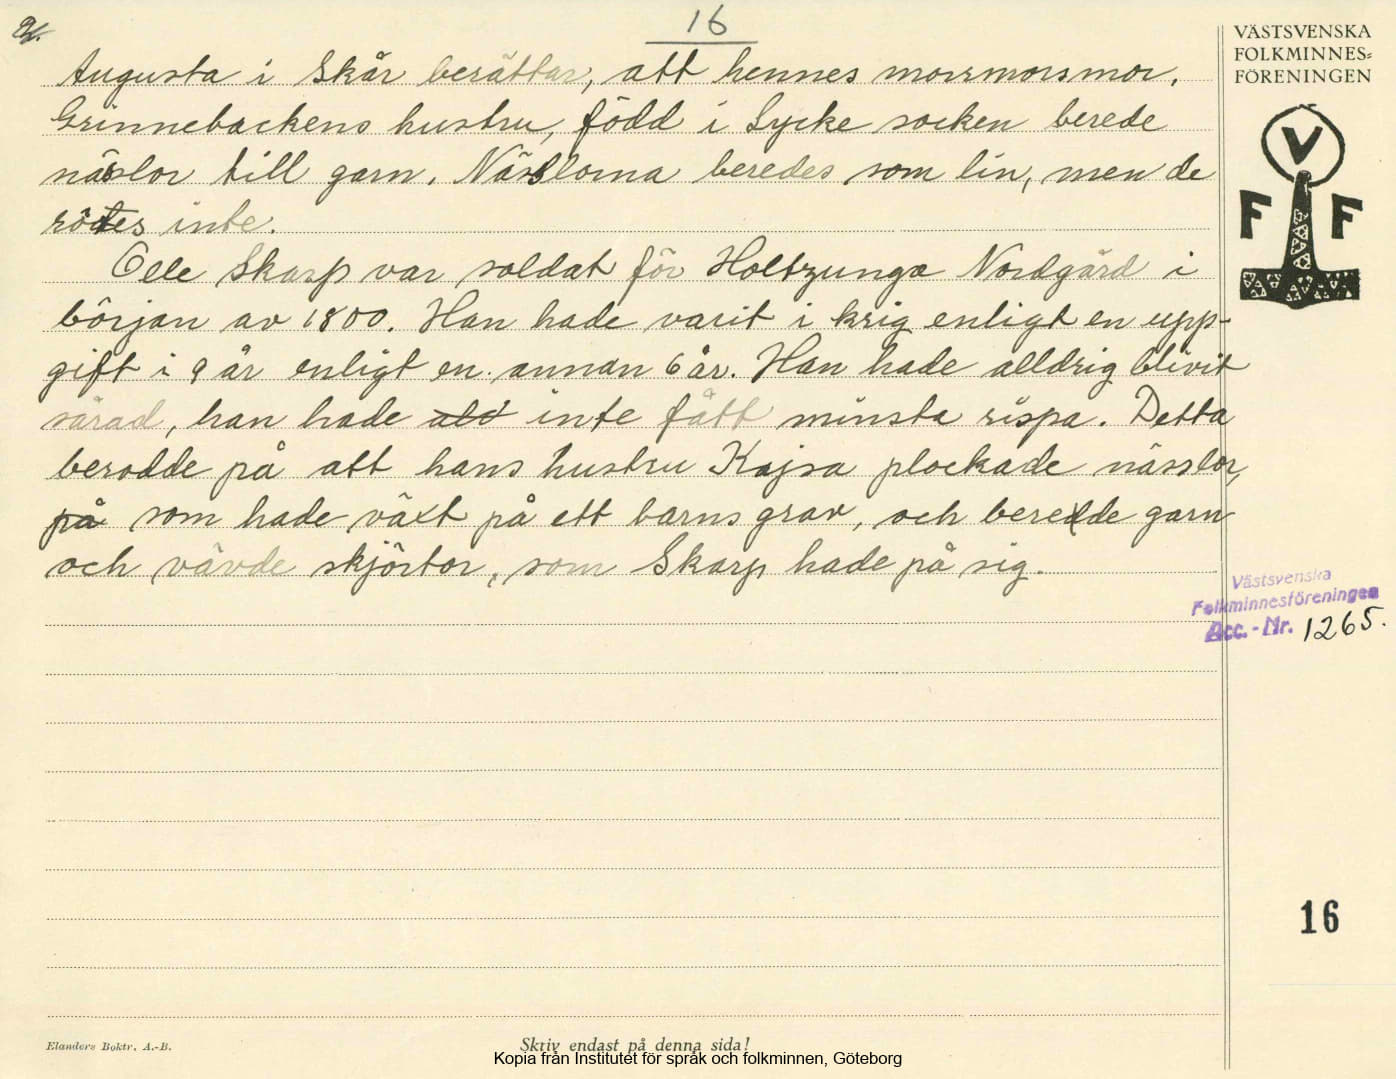 16
Augusta i Skår berättar, att hennes mormorsmor,
Grinnebackens hustru, född i Lycke socken berede
nässlor till garn. Nässlorna beredes som lin, men de
rötes inte.
Olle Skarp var soldat för Holtzunga Nordgård i
början av 1800. Han hade varit i krig enligt en upp-
gift i 9 år enligt en annan 6 år. Han hade alldrig blivit
sårad, han hade inte fått minsta rispa. Detta
berodde på att hans hustru Kajsa plockade nässlor,
på som hade växt på ett barns grav, och beredde garn
och vävde skjörtor, som Skarp hade på sig.
VÄSTSVENSKA
FOLKMINNES=
FÖRENINGEN
V
F F
Västsvenska
Folkminnesföreningen
Acc. - Nr. 1265.
16
Elanders Boktr. A.-B.
Skriv endast på denna sida!
Kopia från Institutet för språk och folkminnen, Göteborg